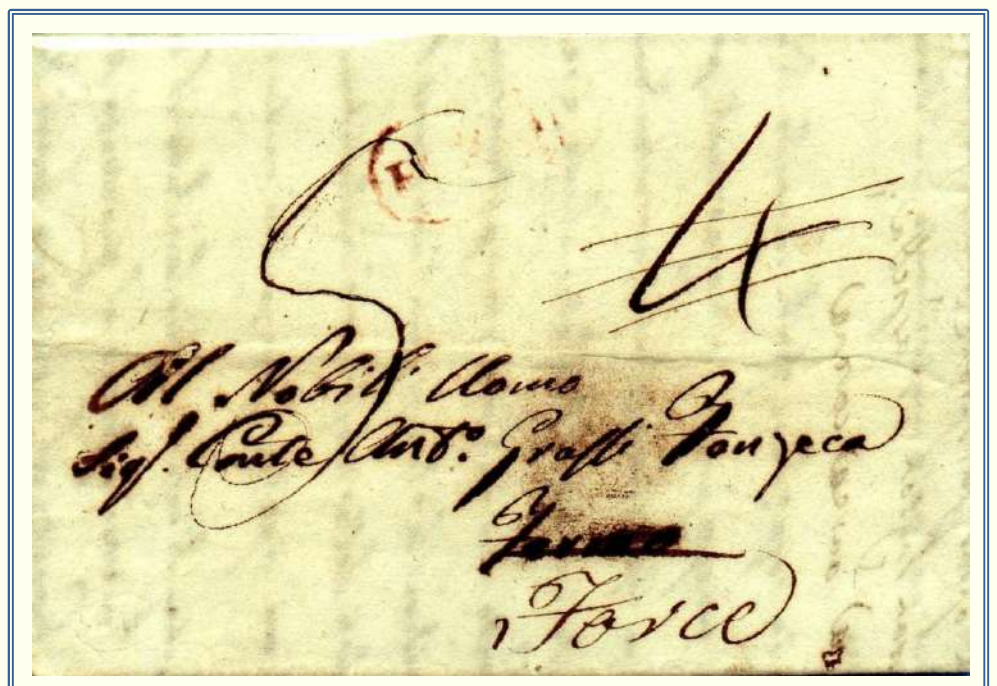 4
Al Nobil' Uomo
Sig.r Conte Ant.o Grassi Fonzeca
Fermo
Force